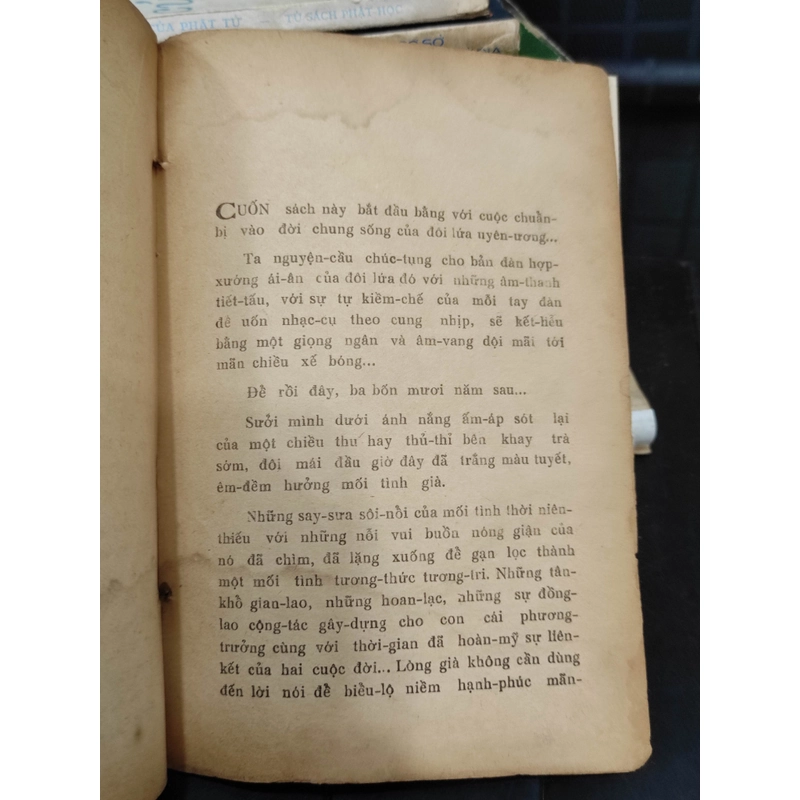 ỬA PHẬT TỬ TỦ SÁCH PHẬT HỌC
CUỐN sách này bắt đầu bằng với cuộc chuẩn-
bị vào đời chung sống của đôi lứa uyên-ương...
Ta nguyện-cầu chúc-tụng cho bản đàn hợp-
xướng ái-ân của đôi lứa đó với những âm-thanh
tiết-tấu, với sự tự kiềm-chế của mỗi tay đàn
để uốn nhạc-cụ theo cung nhịp, sẽ kết-liễu
bằng một giọng ngân và âm-vang dội mãi tới
mãn chiều xế bóng...
Để rồi đây, ba bốn mươi năm sau...
Sưởi mình dưới ánh nắng ấm-áp sót lại
của một chiều thu hay thủ-thỉ bên khay trà
sớm, đôi mái đầu giờ đây đã trắng màu tuyết,
êm-đềm hưởng mối tình già.
Những say-sưa sôi-nổi của mối tình thời niên-
thiếu với những nỗi vui buồn nóng giận của
nó đã chìm, đã lặng xuống để gạn lọc thành
một mối tình tương-thức tương-tri. Những tân-
khổ gian-lao, những hoan-lạc, những sự đồng-
lao cộng-tác gây-dựng cho con cái phương-
trưởng cùng với thời-gian đã hoàn-mỹ sự liên-
kết của hai cuộc đời... Lòng già không cần dùng
đến lời nói để biểu-lộ niềm hạnh-phúc mãn-